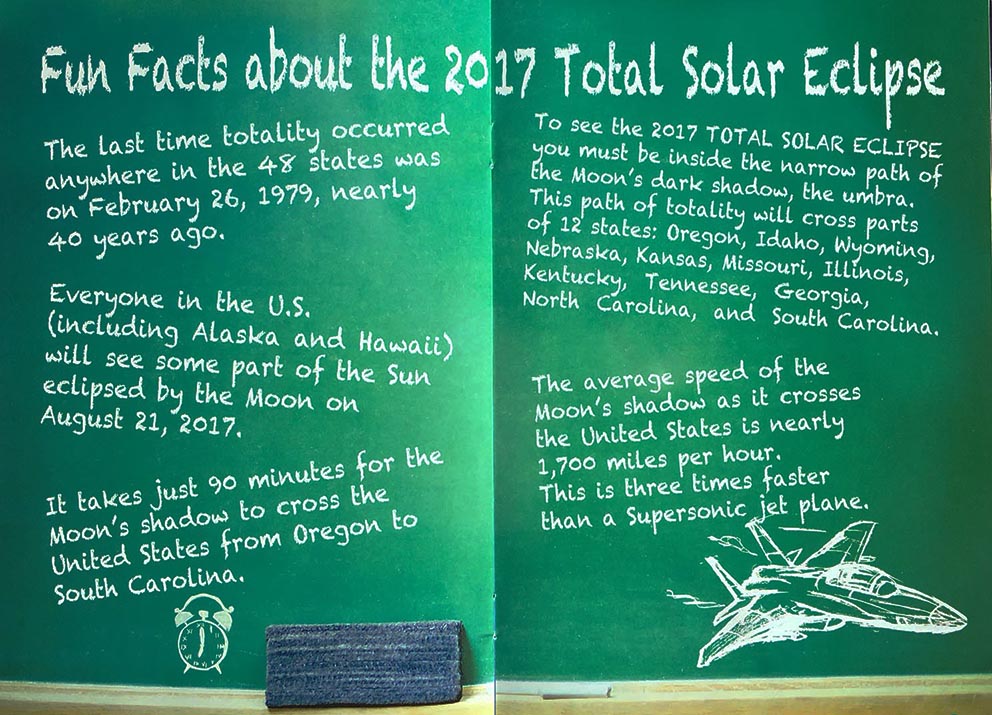 Fun Facts about the 2017 Total Solar Eclipse
The last time totality occurred
anywhere in the 48 states was
on February 26, 1979, nearly
40 years ago.
Everyone in the U.S.
(including Alaska and Hawaii)
will see some part of the Sun
eclipsed by the Moon on
August 21, 2017.
It takes just 90 minutes for the
Moon's shadow to cross the
United States from Oregon to
South Carolina.
To see the 2017 TOTAL SOLAR ECLIPSE
you must be inside the narrow path of
the Moon's dark shadow, the umbra.
This path of totality will cross parts
of 12 states: Oregon, Idaho, Wyoming,
Nebraska, Kansas, Missouri, Illinois,
Kentucky, Tennessee, Georgia,
North Carolina, and South Carolina.
The average speed of the
Moon's shadow as it crosses
the United States is nearly
1,700 miles per hour.
This is three times faster
than a Supersonic jet plane.